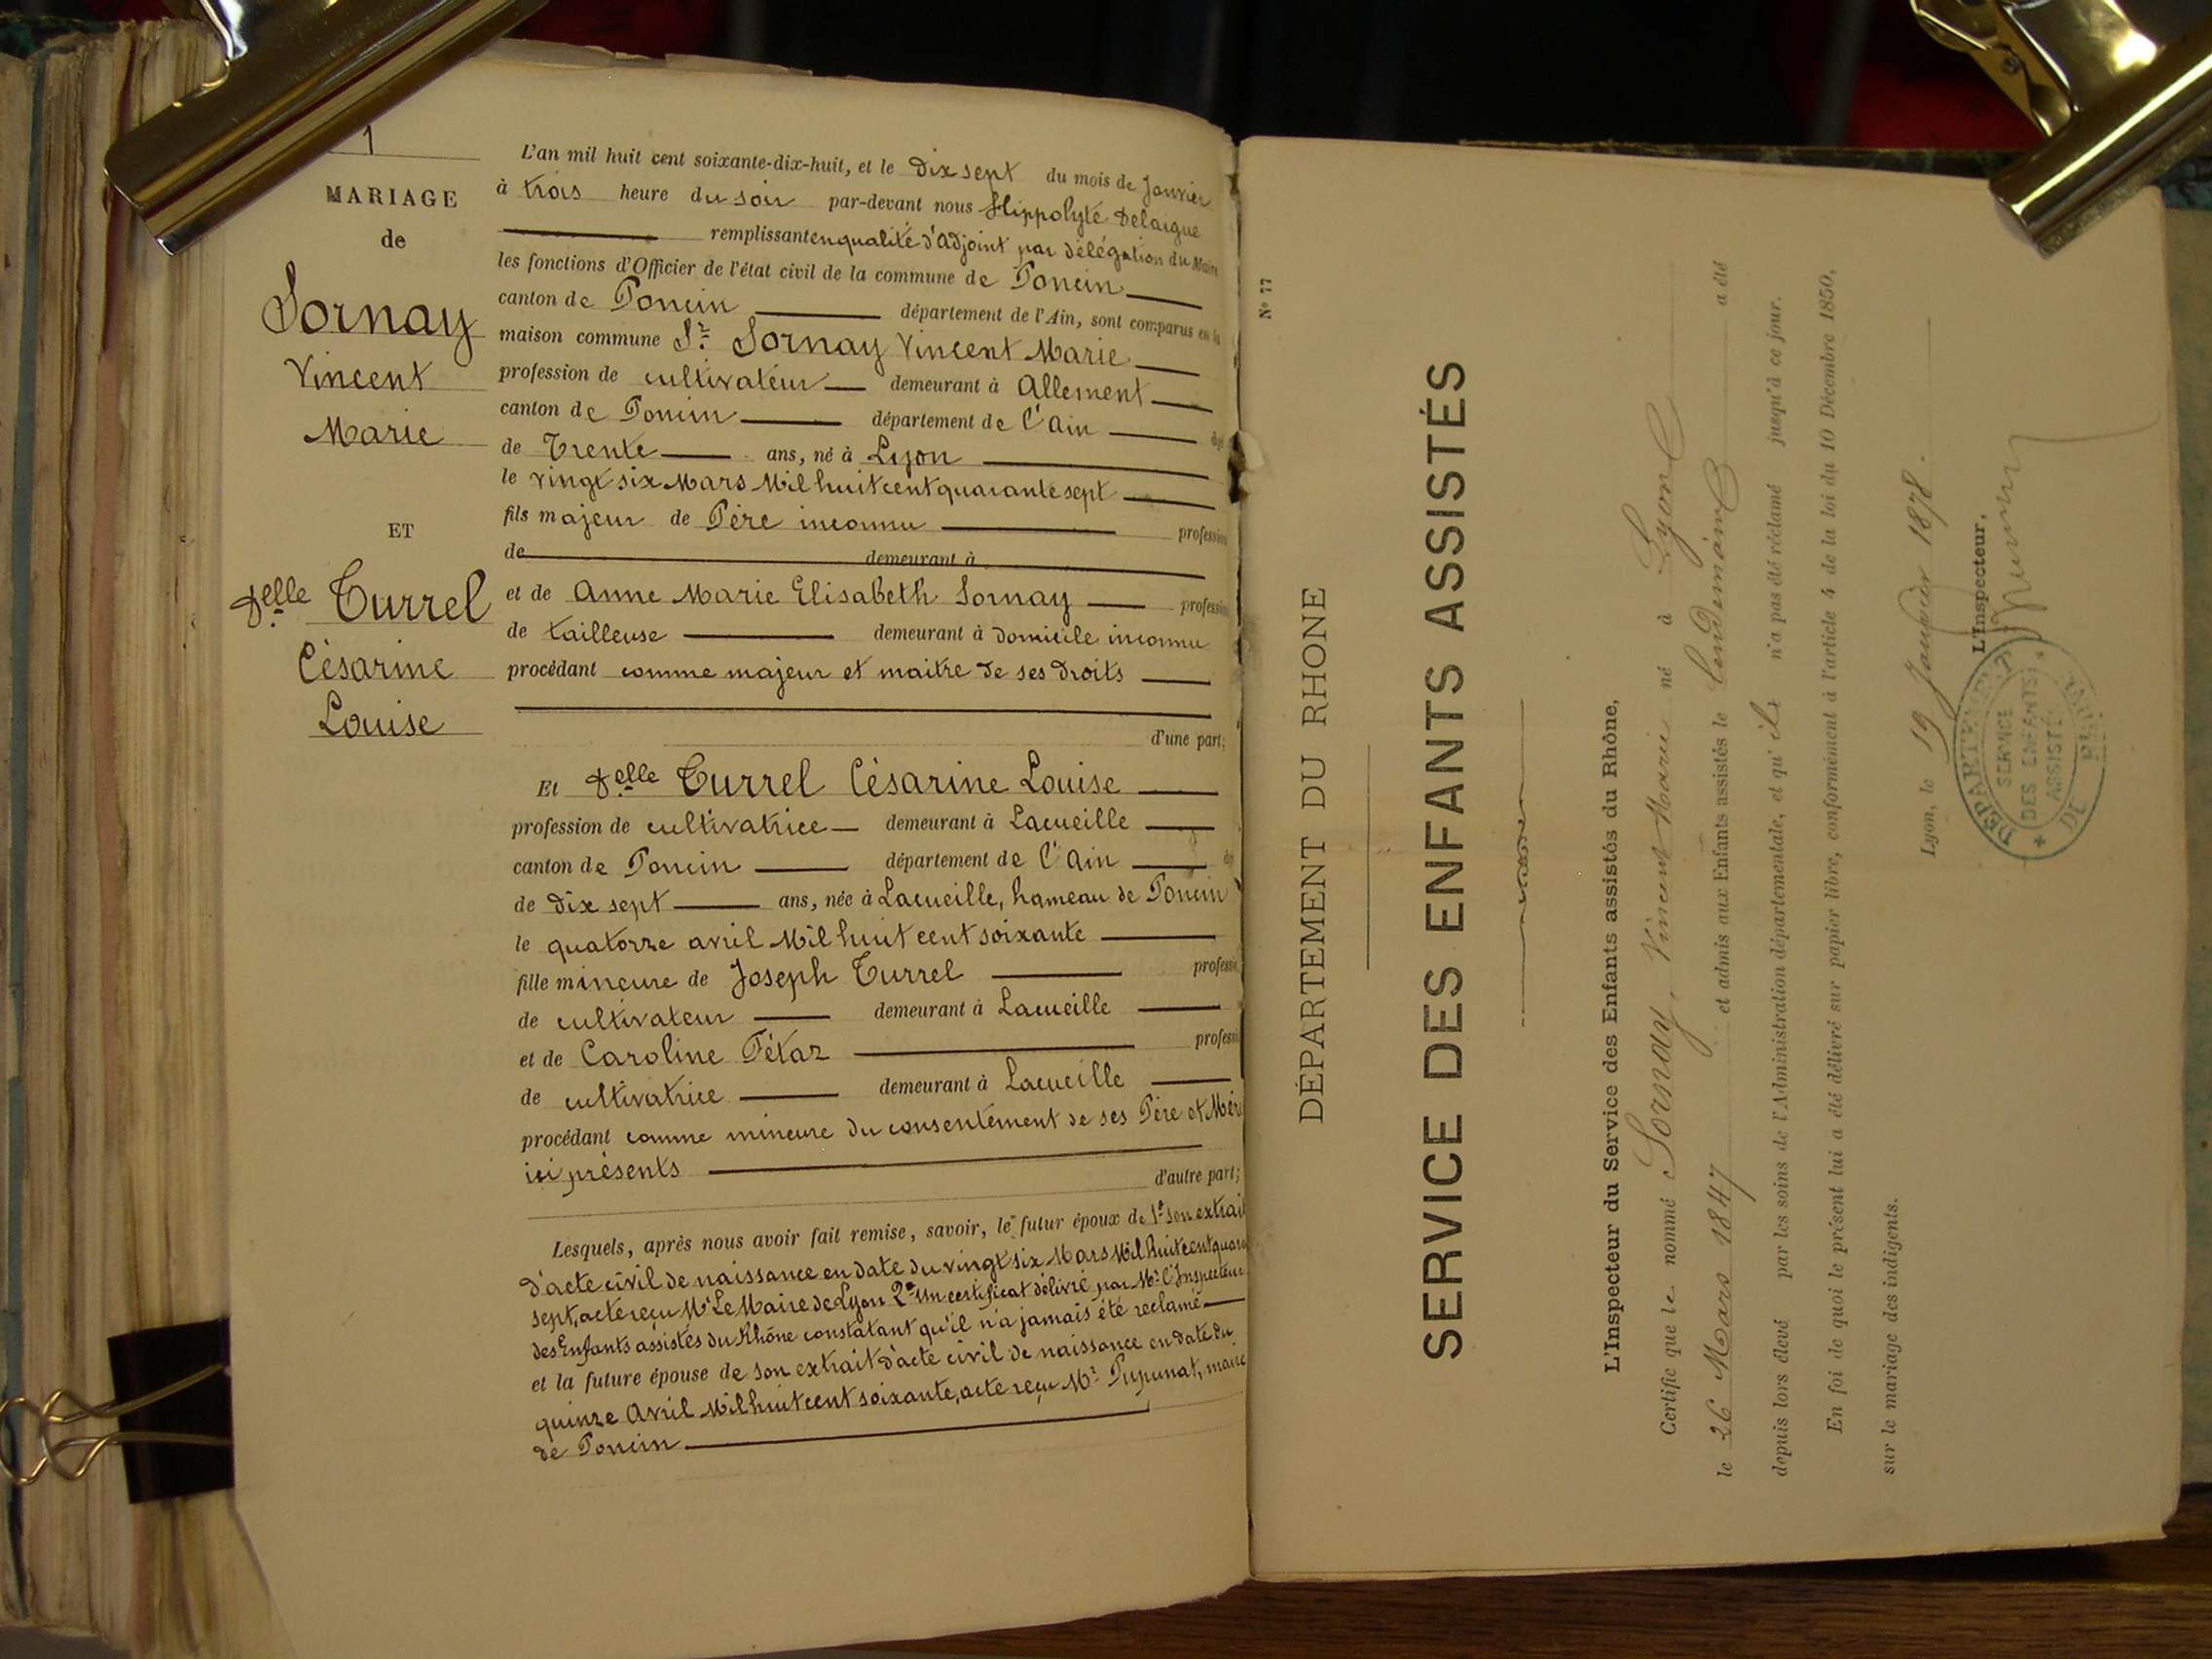 1
MARIAGE
de
Sornay
Vincent
Marie
ET
Delle Turrel
Césarine
Louise
L'an mil huit cent soixante-dix-huit, et le dix sept du mois de Janvier
à trois heure du soir par-devant nous Hippolyte Delaigue
remplissant en qualité d'adjoint par délégation du Maire
les fonctions d'Officier de l'état civil de la commune de Poncin
canton de Poncin département de l'Ain, sont comparus en la
maison commune Sr Sornay Vincent Marie
profession de cultivateur demeurant à Allement
canton de Poncin département de l'ain
de Trente ans, né à Lyon
le vingt six Mars Mil huit cent quarante sept
fils majeur de Père inconnu profession
de demeurant à
et de Anne Marie Elisabeth Sornay profession
de tailleuse demeurant à domicile inconnu
procédant comme majeur et maitre de ses droits
d'une part;
Et Delle Turrel Césarine Louise
profession de cultivatrice demeurant à Lacueille
canton de Poncin département de l'Ain
de dix sept ans, née à Lacueille, hameau de Poncin
le quatorze avril Mil huit cent soixante
fille mineure de Joseph Turrel professi
de cultivateur demeurant à Lacueille
et de Caroline Pétaz professi
de cultivatrice demeurant à Lacueille
procédant comme mineure du consentement de ses Père et Mère
ici présents
d'autre part;
Lesquels, après nous avoir fait remise, savoir, le futur époux de 1° son extrait
d'acte civil de naissance en date du vingt six Mars Mil huit cent quara
sept, acte reçu Mr Le Maire de Lyon 2° un certificat délivré par Mr l'Inspecteur
des Enfants assistés du Rhône constatant qu'il n'a jamais été reclamé
et la future épouse de son extrait d'acte civil de naissance en date du
quinze Avril Mil huit cent soixante, acte reçu Mr Pupunat, maire
de Poncin
N° 77
DÉPARTEMENT DU RHONE
SERVICE DES ENFANTS ASSISTÉS
L'Inspecteur du Service des Enfants assistés du Rhône,
Certifie que le nommé Sornay, Vincent Marie né à Lyon
le 26 Mars 1847 et admis aux Enfants assistés le lendemain a été
depuis lors élevé par les soins de l'Administration départementale, et qu'il n'a pas été réclamé jusqu'à ce jour.
En foi de quoi le présent lui a été délivré sur papier libre, conformément à l'article 4 de la loi du 10 Décembre 1850,
sur le mariage des indigents.
Lyon, le 19 Janvier 1878.
L'Inspecteur,
DÉPARTEMENT
SERVICE
DES ENFANTS
ASSISTÉS
DU RHÔNE